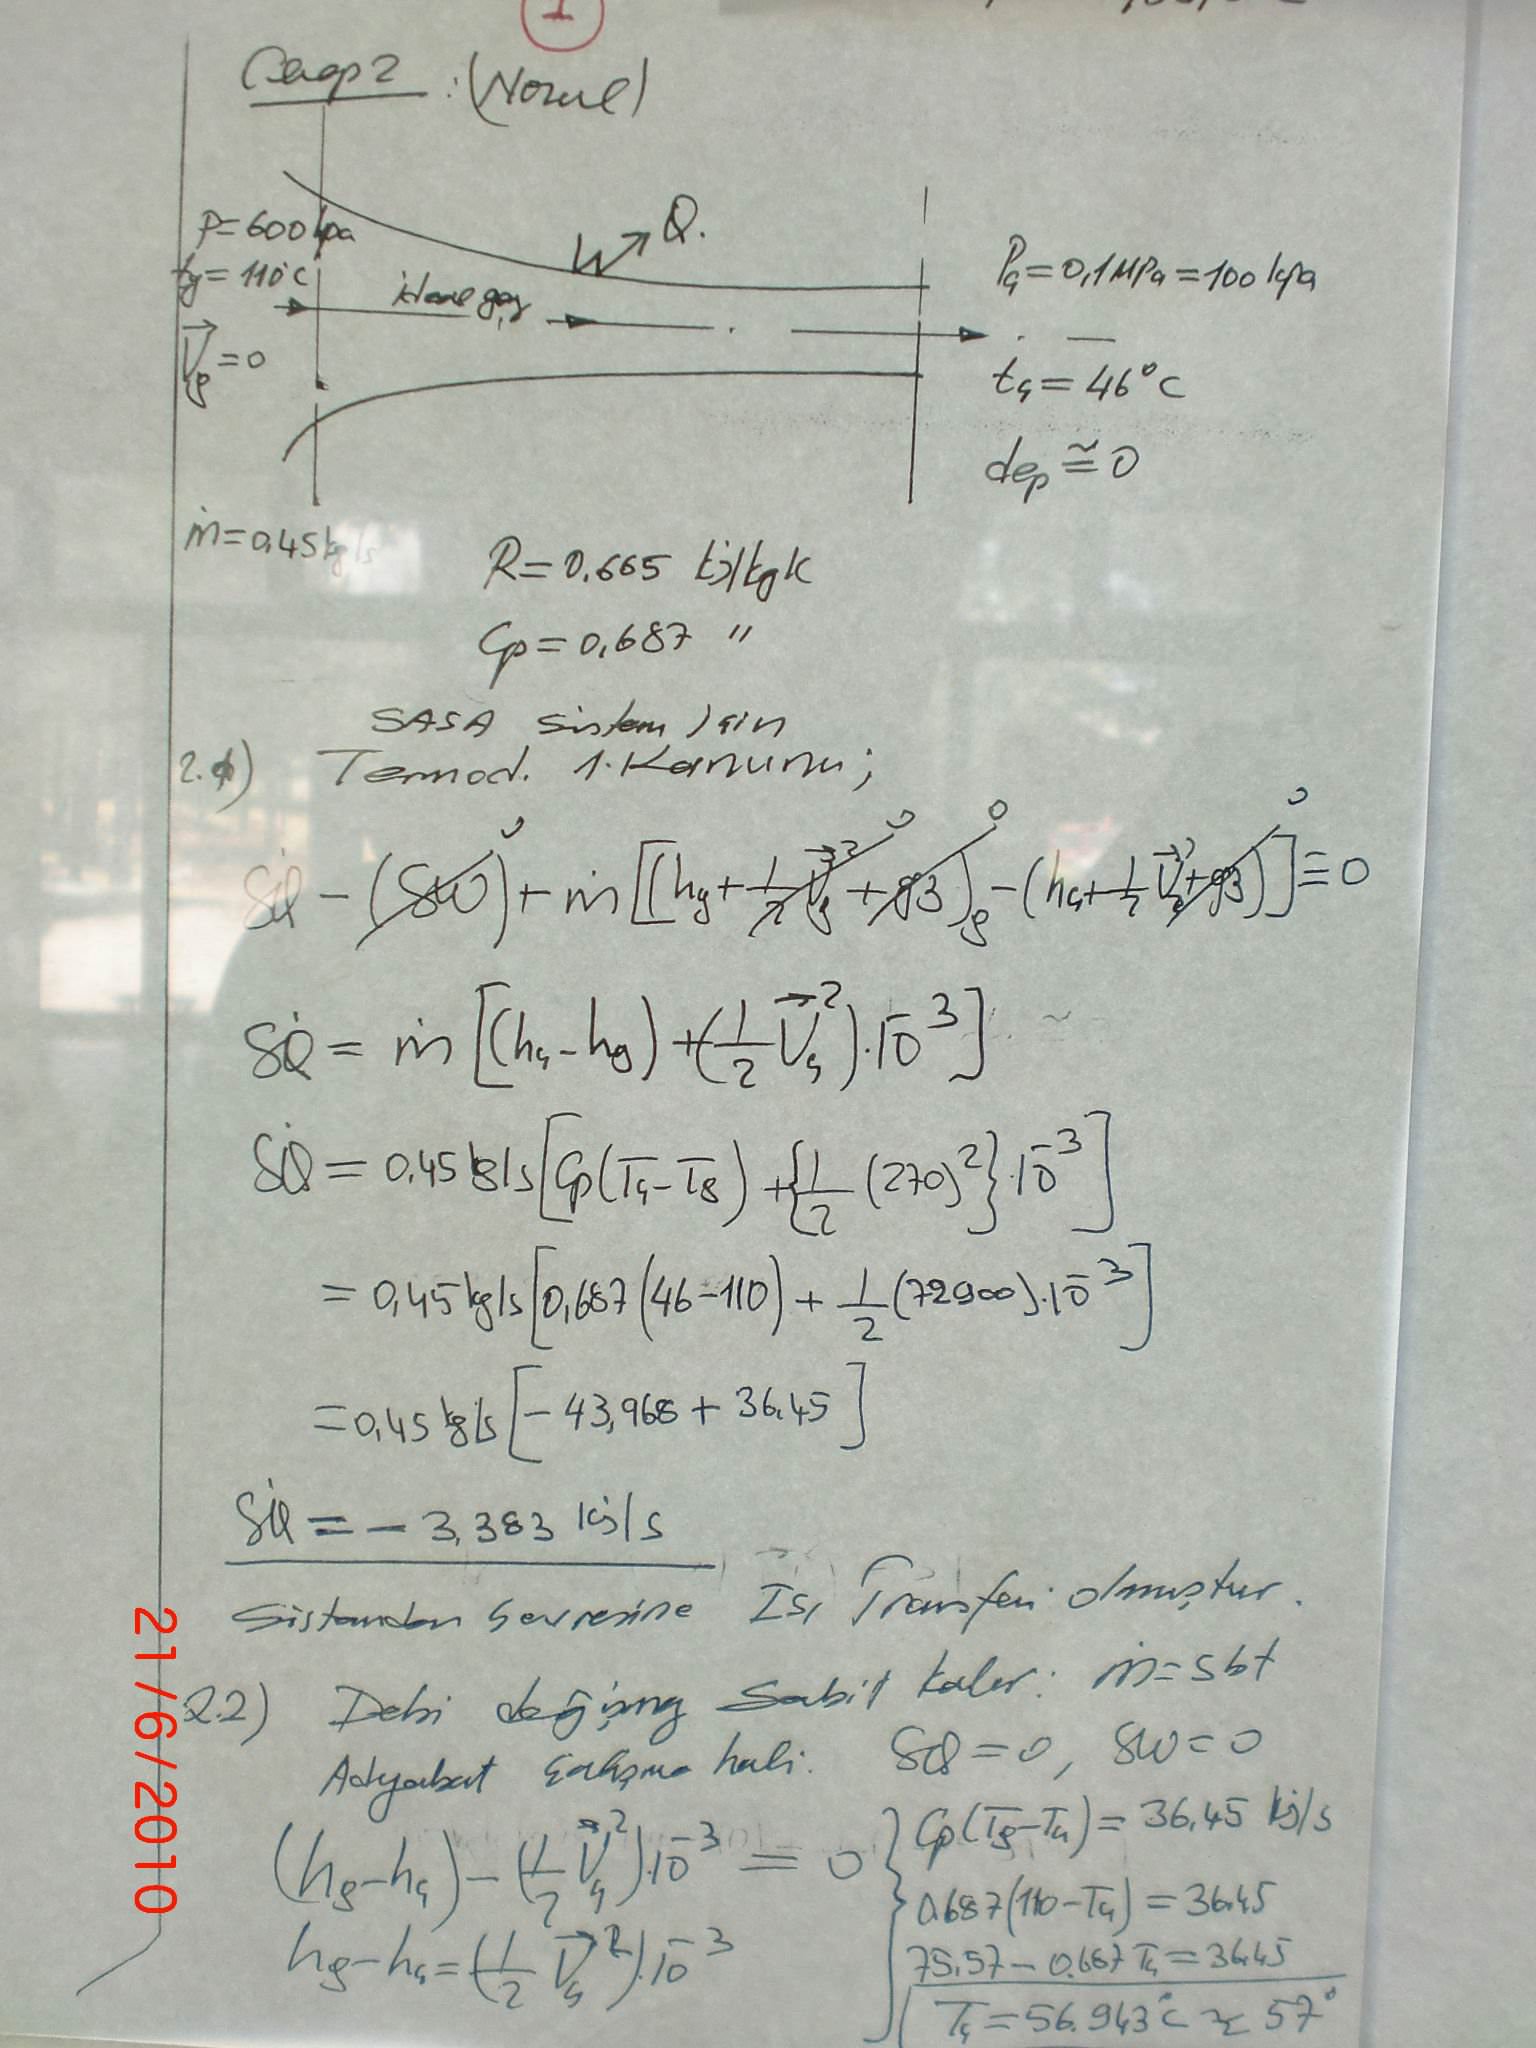 1
Cevap 2 : (Nozul)
P=600 kpa
tg = 110°C
Vg = 0
ideal gaz
Q.
Pç = 0,1 MPa = 100 kpa
tç = 46°C
dep ≅ 0
ṁ = 0,45 kg/s
R = 0.665 kj/kgK
Cp = 0,687 "
SASA sistem için
2.1) Termod. 1. Kanunu;
δQ̇ - (δẆ) + ṁ [(hg + 1/2 Vg² + gz)g - (hç + 1/2 Vç² + gz)] = 0
δQ̇ = ṁ [(hç - hg) + (1/2 Vç²).10⁻³]
δQ̇ = 0,45 kg/s [Cp(Tç - Tg) + {1/2 (270)²}.10⁻³]
= 0,45 kg/s [0,687 (46-110) + 1/2 (72900).10⁻³]
= 0,45 kg/s [-43,968 + 36.45]
δQ̇ = - 3,383 kj/s
Sistemden çevresine Isı Transferi olmuştur.
2.2) Debi değişmez sabit kalır: ṁ = sbt
Adyabat çalışma hali: δQ = 0, δW = 0
(hg - hç) - (1/2 Vç²).10⁻³ = 0
hg - hç = (1/2 Vç²).10⁻³
Cp(Tg - Tç) = 36,45 kj/s
0.687(110 - Tç) = 36.45
75,57 - 0.687 Tç = 36.45
Tç = 56.943°C ≈ 57°
21/6/2010